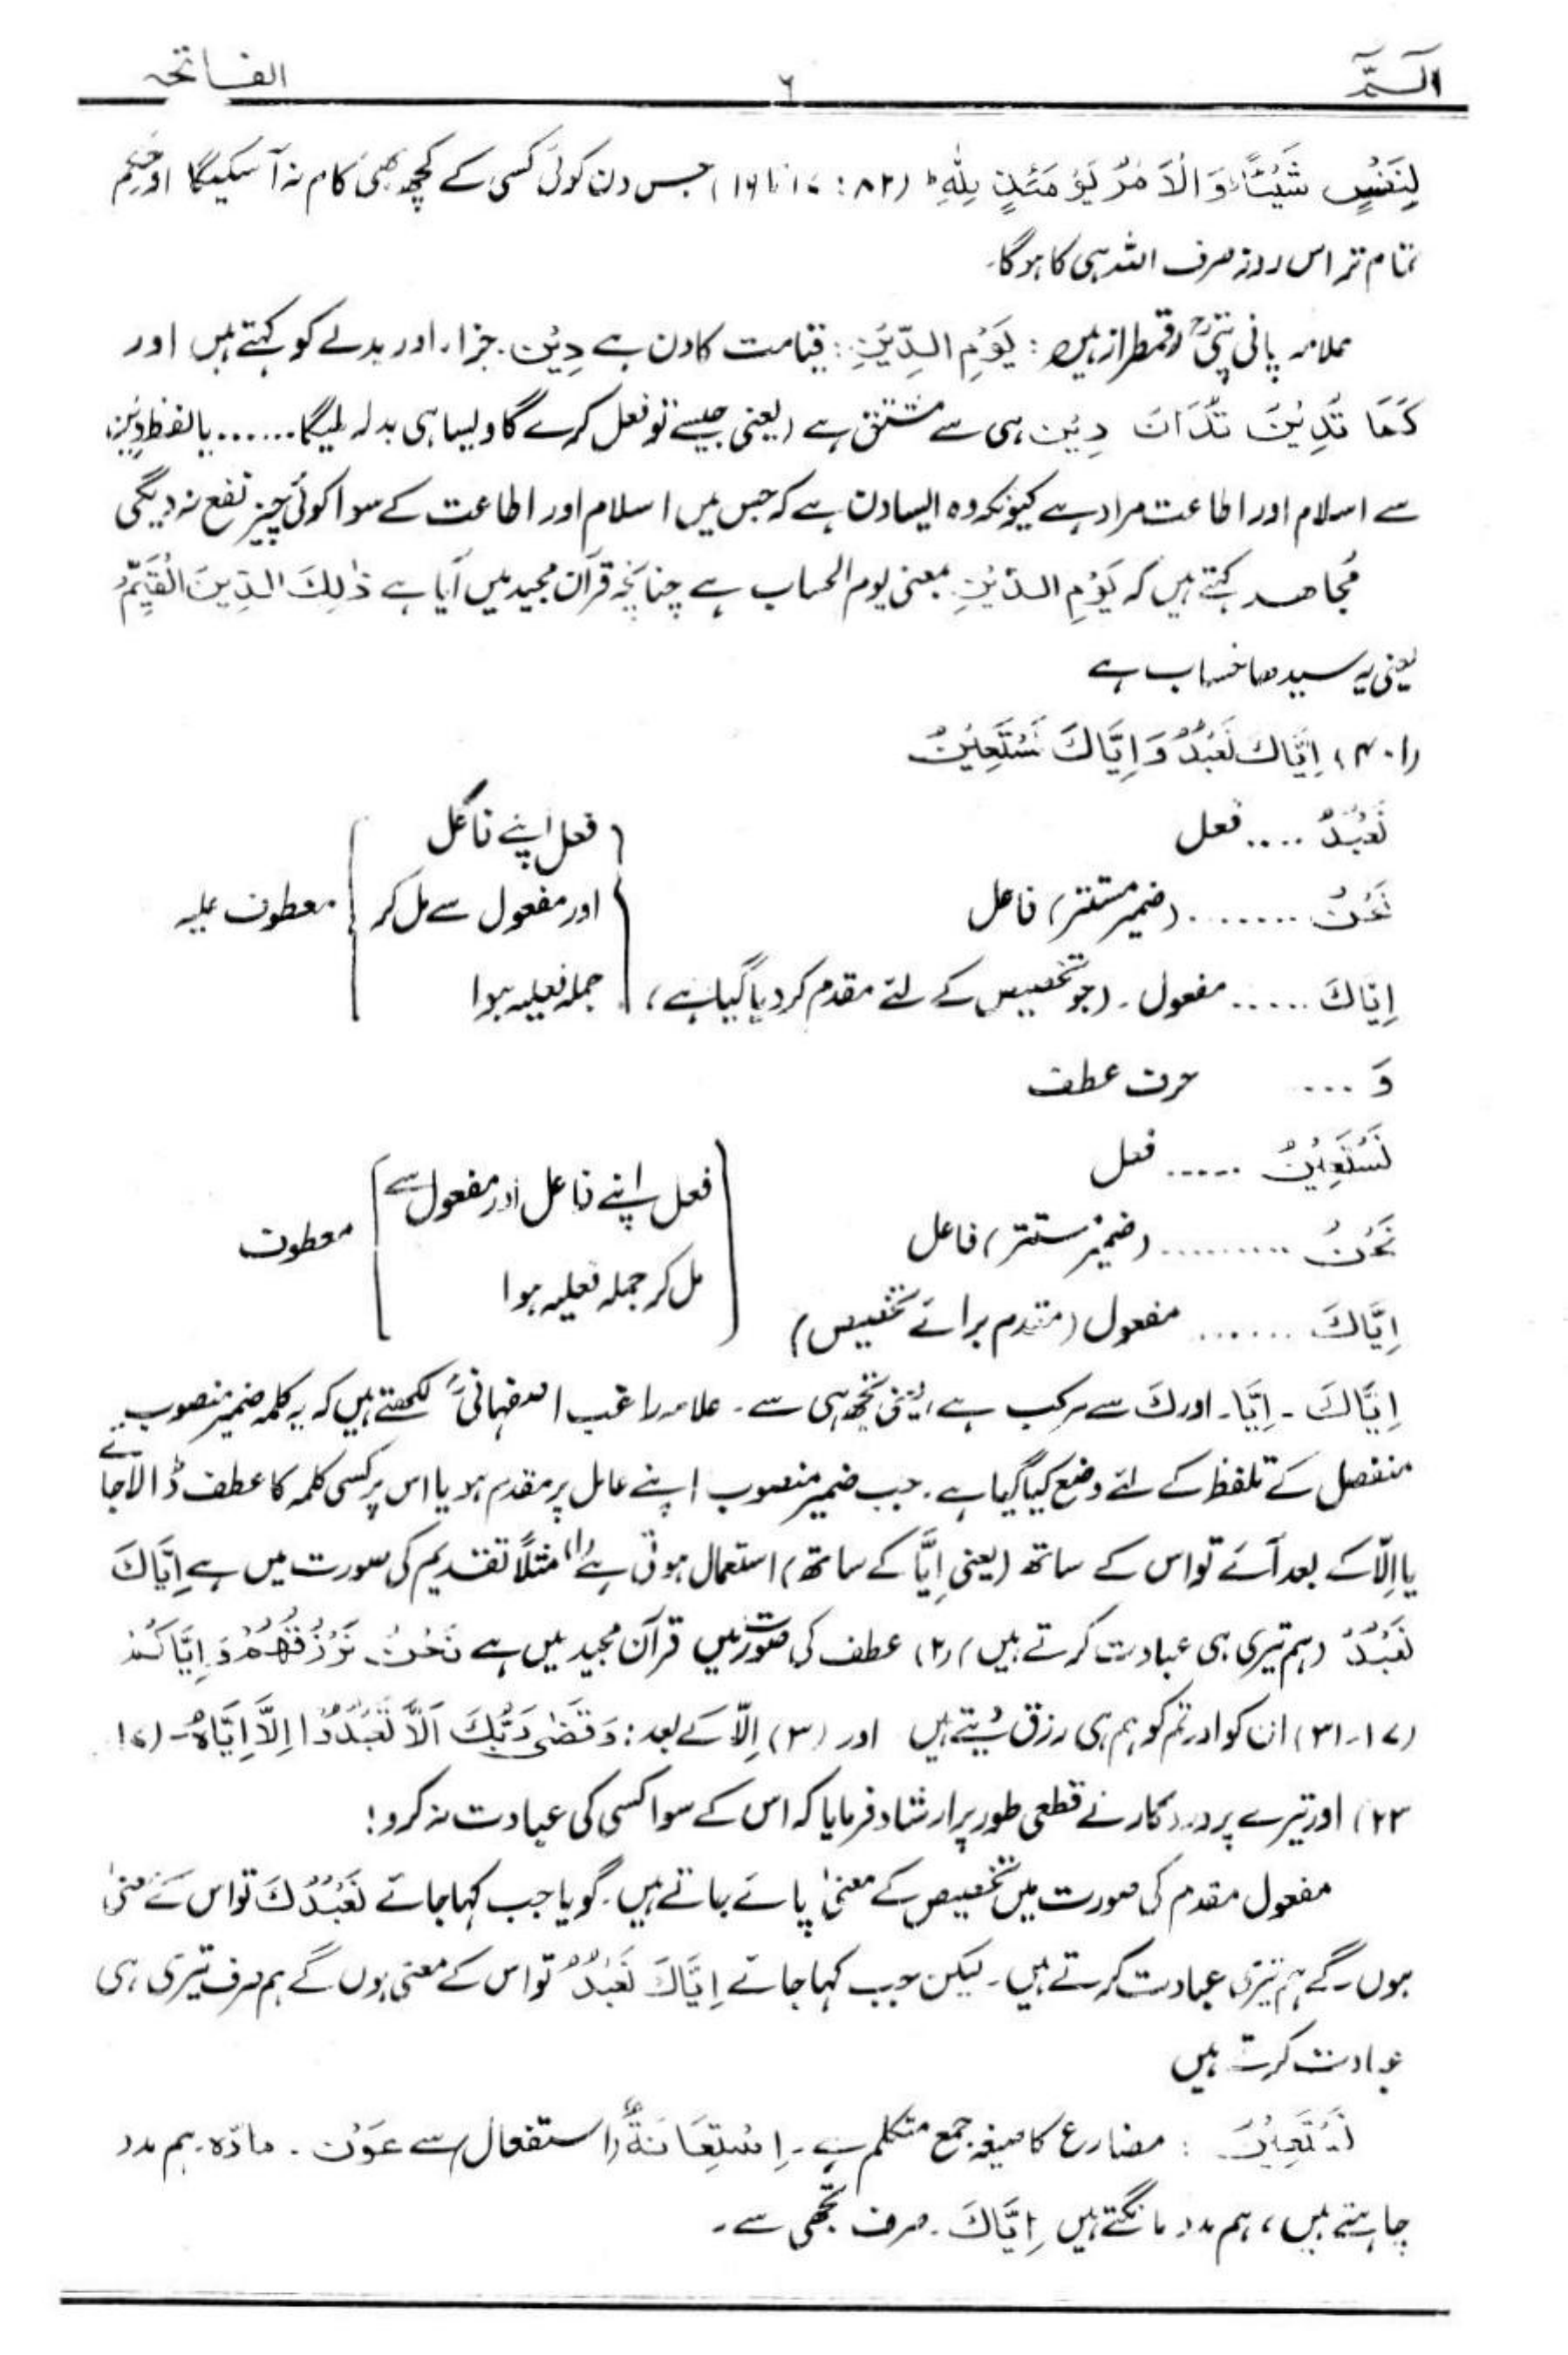 الٓـمّٓ ۶ الفاتحہ
لِنَفْسٍ شَیْئًا وَالْاَمْرُ یَوْمَئِذٍ لِلّٰهِ ط (۸۲: ۱۷ تا ۱۹) جس دن کوئی کسی کے کچھ بھی کام نہ آ سکیگا اور حکم
تمام تر اس روز صرف اللہ ہی کا ہوگا۔
علامہ پانی پتیؒ رقمطراز ہیں: یَوْمِ الدِّیْنِ: قیامت کا دن ہے دِیْن۔ جزاء اور بدلے کو کہتے ہیں اور
کَمَا تَدِیْنُ تُدَانُ دِیْن ہی سے مشتق ہے (یعنی جیسے تو فعل کرے گا ویسا ہی بدلہ ملیگا...... یا لفظ دِیْن
سے اسلام اور اطاعت مراد ہے کیونکہ وہ ایسا دن ہے کہ جس میں اسلام اور اطاعت کے سوا کوئی چیز نفع نہ دیگی
مُجاھد کہتے ہیں کہ یَوْمِ الدِّیْنِ بمعنی یوم الحساب ہے چنانچہ قرآن مجید میں آیا ہے ذٰلِكَ الدِّیْنُ الْقَیِّمُ
یعنی یہ سیدھا حساب ہے
(۱۔۴) اِیَّاكَ نَعْبُدُ وَاِیَّاكَ نَسْتَعِیْنُ
نَعْبُدُ .... فعل
نَحْنُ ....... (ضمیر مستتر) فاعل
اِیَّاكَ ...... مفعول۔ (جو تخصیص کے لئے مقدم کر دیا گیا ہے)
فعل اپنے فاعل
اور مفعول سے مل کر
جملہ فعلیہ ہوا
معطوف علیہ
وَ .... حرف عطف
نَسْتَعِیْنُ ..... فعل
نَحْنُ ......... (ضمیر مستتر) فاعل
اِیَّاكَ ....... مفعول (مقدم برائے تخصیص)
فعل اپنے فاعل اور مفعول سے
مل کر جملہ فعلیہ ہوا
معطوف
اِیَّاكَ۔ اِیَّا۔ اور كَ سے مرکب ہے، یعنی تجھ ہی سے۔ علامہ راغب اصفہانیؒ لکھتے ہیں کہ یہ کلمہ ضمیر منصوب
منفصل کے تلفظ کے لئے وضع کیا گیا ہے۔ جب ضمیر منصوب اپنے عامل پر مقدم ہو یا اس پر کسی کلمہ کا عطف ڈالا جائے
یا اِلَّا کے بعد آئے تو اس کے ساتھ (یعنی اِیَّا کے ساتھ) استعمال ہوتی ہے (۱) مثلاً تقدیم کی صورت میں ہے اِیَّاكَ
نَعْبُدُ (ہم تیری ہی عبادت کرتے ہیں) (۲) عطف کی صورت میں قرآن مجید میں ہے نَحْنُ نَرْزُقُهُمْ وَاِیَّاكُمْ
(۱۷۔۳۱) ان کو اور تم کو ہم ہی رزق دیتے ہیں اور (۳) اِلَّا کے بعد: وَقَضٰی رَبُّكَ اَلَّا تَعْبُدُوْا اِلَّا اِیَّاهُ۔ (۱۷۔
۲۳) اور تیرے پروردگار نے قطعی طور پر ارشاد فرمایا کہ اس کے سوا کسی کی عبادت نہ کرو!
مفعول مقدم کی صورت میں تخصیص کے معنیٰ پائے جاتے ہیں۔ گویا جب کہا جائے نَعْبُدُكَ تو اس کے معنیٰ
ہوں گے ہم تیری عبادت کرتے ہیں۔ لیکن جب کہا جائے اِیَّاكَ نَعْبُدُ تو اس کے معنی ہوں گے ہم صرف تیری ہی
عبادت کرتے ہیں
نَسْتَعِیْنُ: مضارع کا صیغہ جمع متکلم ہے۔ اِسْتِعَانَةٌ (استفعال) سے عَوْن۔ مادّہ۔ ہم مدد
چاہتے ہیں، ہم مدد مانگتے ہیں اِیَّاكَ۔ صرف تجھی سے۔